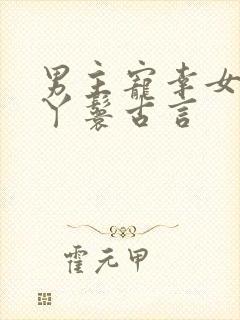 男主宠幸女
丫鬟古言
霍元甲